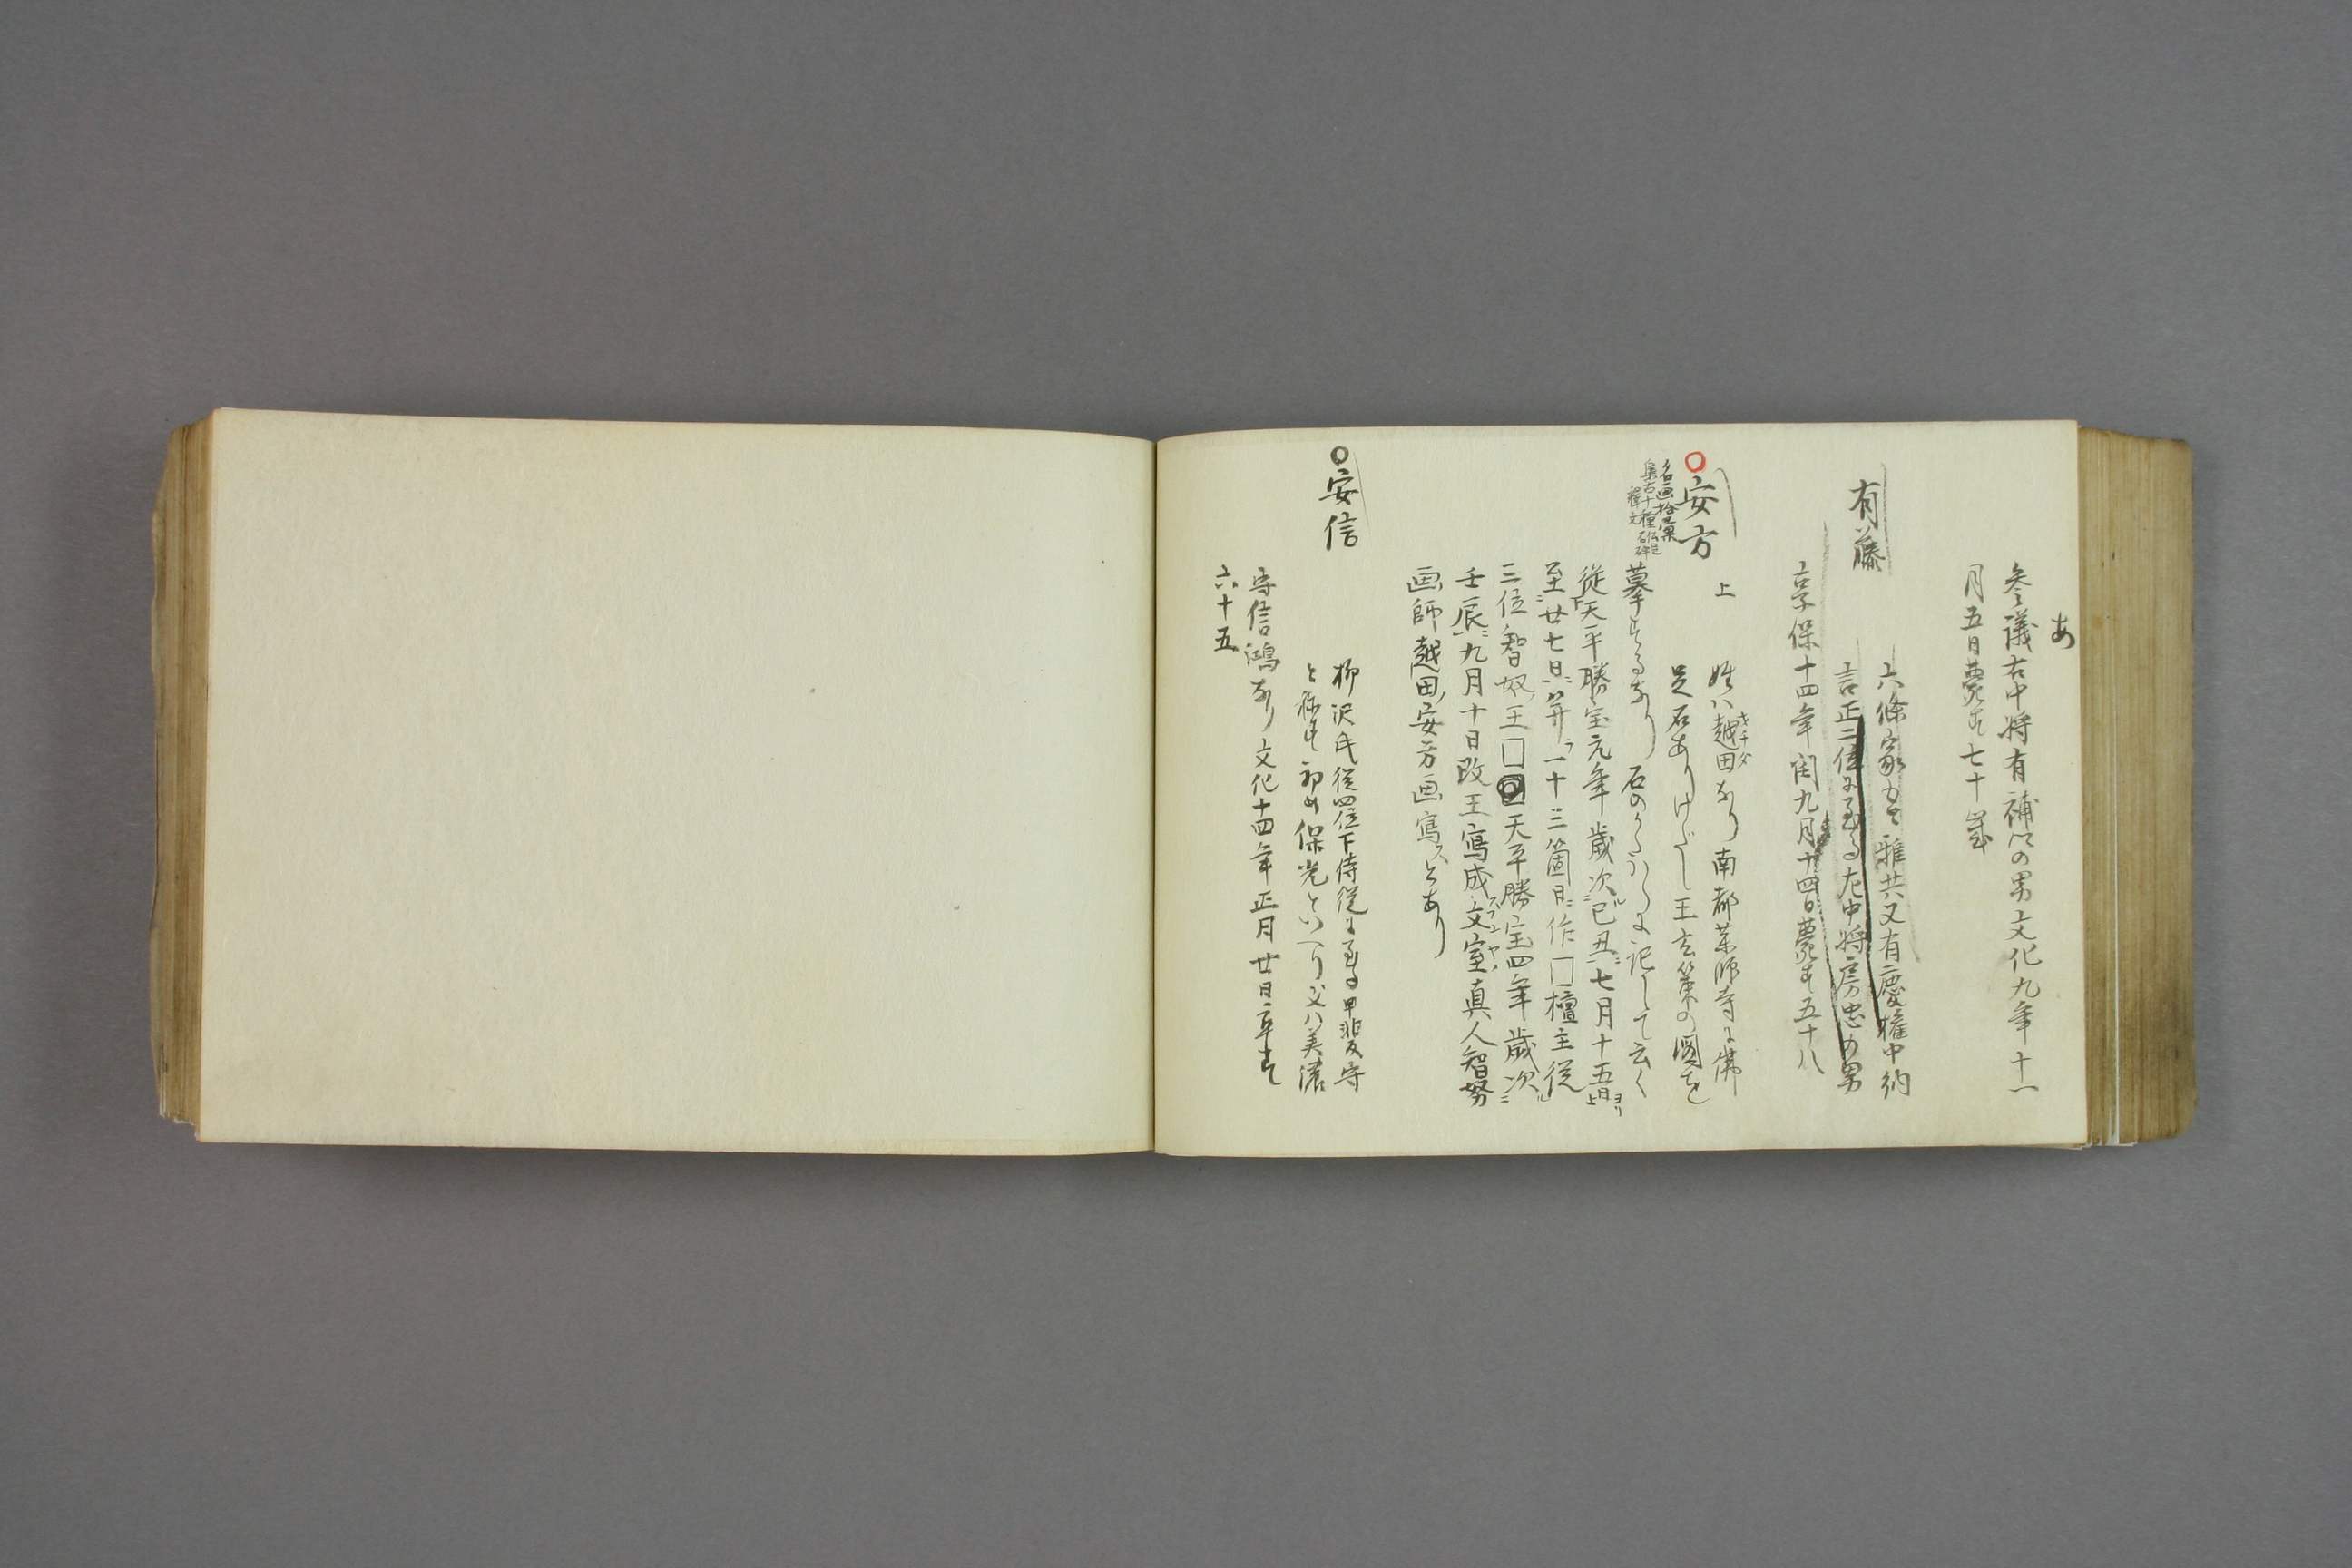 あ
参議右中将有補の男文化九年十一
月五日薨す七十歳
有藤
六條家初雅共又有慶権中納
言正二位に至る左中将房忠の男
享保十四年閏九月十四日薨す五十八
安方
名画拾彙
集古十種
釋文
上
姓ハ越田なり南都薬師寺に佛
キチダ
足石ありけだし王玄策の圖を
摹するなり石のかたハらに記して云く
從天平勝宝元年歳次己丑七月十五日
至廿七日并一十三箇日作□檀主從
三位智奴王□天平勝宝四年歳次
壬辰九月十日改王寫成文室真人智努
画師越田安方画寫スとあり
安信
柳沢氏従四位下侍従に至る甲斐守
と称す初め保光といへり父ハ美濃
守信鴻なり文化十四年正月廿日卒す
六十五